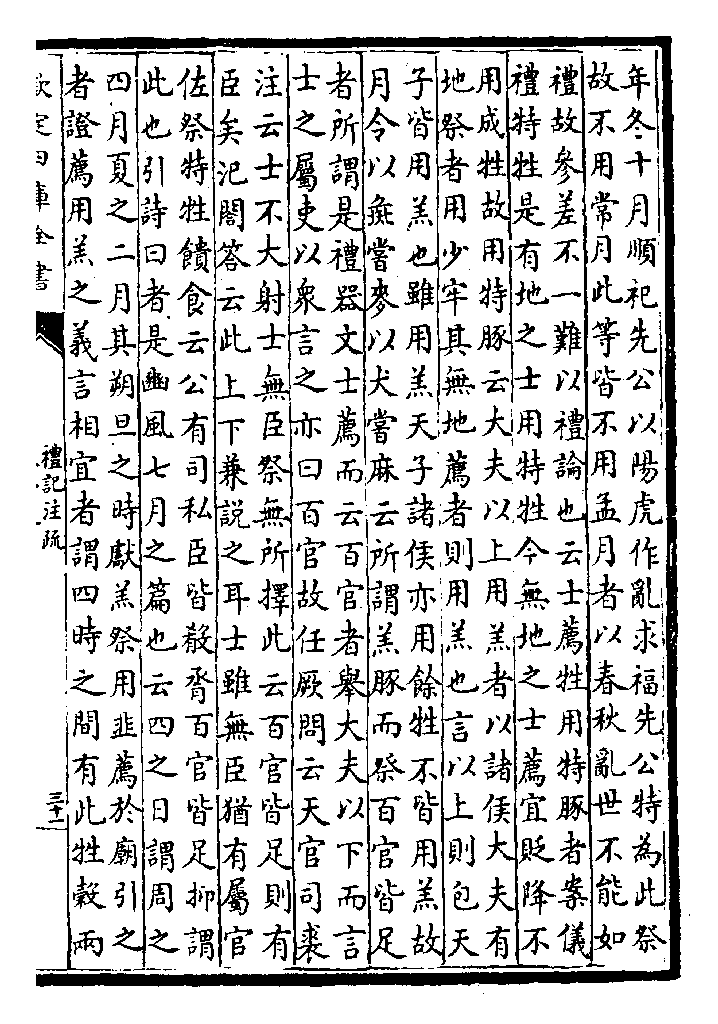 年冬十月順祀先公以陽虎作亂求福先公特為此祭
故不用常月此等皆不用孟月者以春秋亂世不能如
禮故參差不一難以禮論也云士薦牲用特豚者案儀
禮特牲是有地之士用特牲今無地之士薦宜貶降不
用成牲故用特豚云大夫以上用羔者以諸侯大夫有
地祭者用少牢其無地薦者則用羔也言以上則包天
子皆用羔也雖用羔天子諸侯亦用餘牲不皆用羔故
月令以彘嘗麥以犬嘗麻云所謂羔豚而祭百官皆足
者所謂是禮器文士薦而云百官者舉大夫以下而言
士之屬吏以衆言之亦曰百官故任厥問云天官司裘
注云士不大射士無臣祭無所擇此云百官皆足則有
臣矣汜閣答云此上下兼説之耳士雖無臣猶有屬官
佐祭特牲饋食云公有司私臣皆殽脀百官皆足抑謂
此也引詩曰者是豳風七月之篇也云四之日謂周之
四月夏之二月其朔旦之時獻羔祭用韭薦於廟引之
者證薦用羔之義言相宜者謂四時之間有此牲穀兩
欽定四庫全書
禮記注疏
三十一